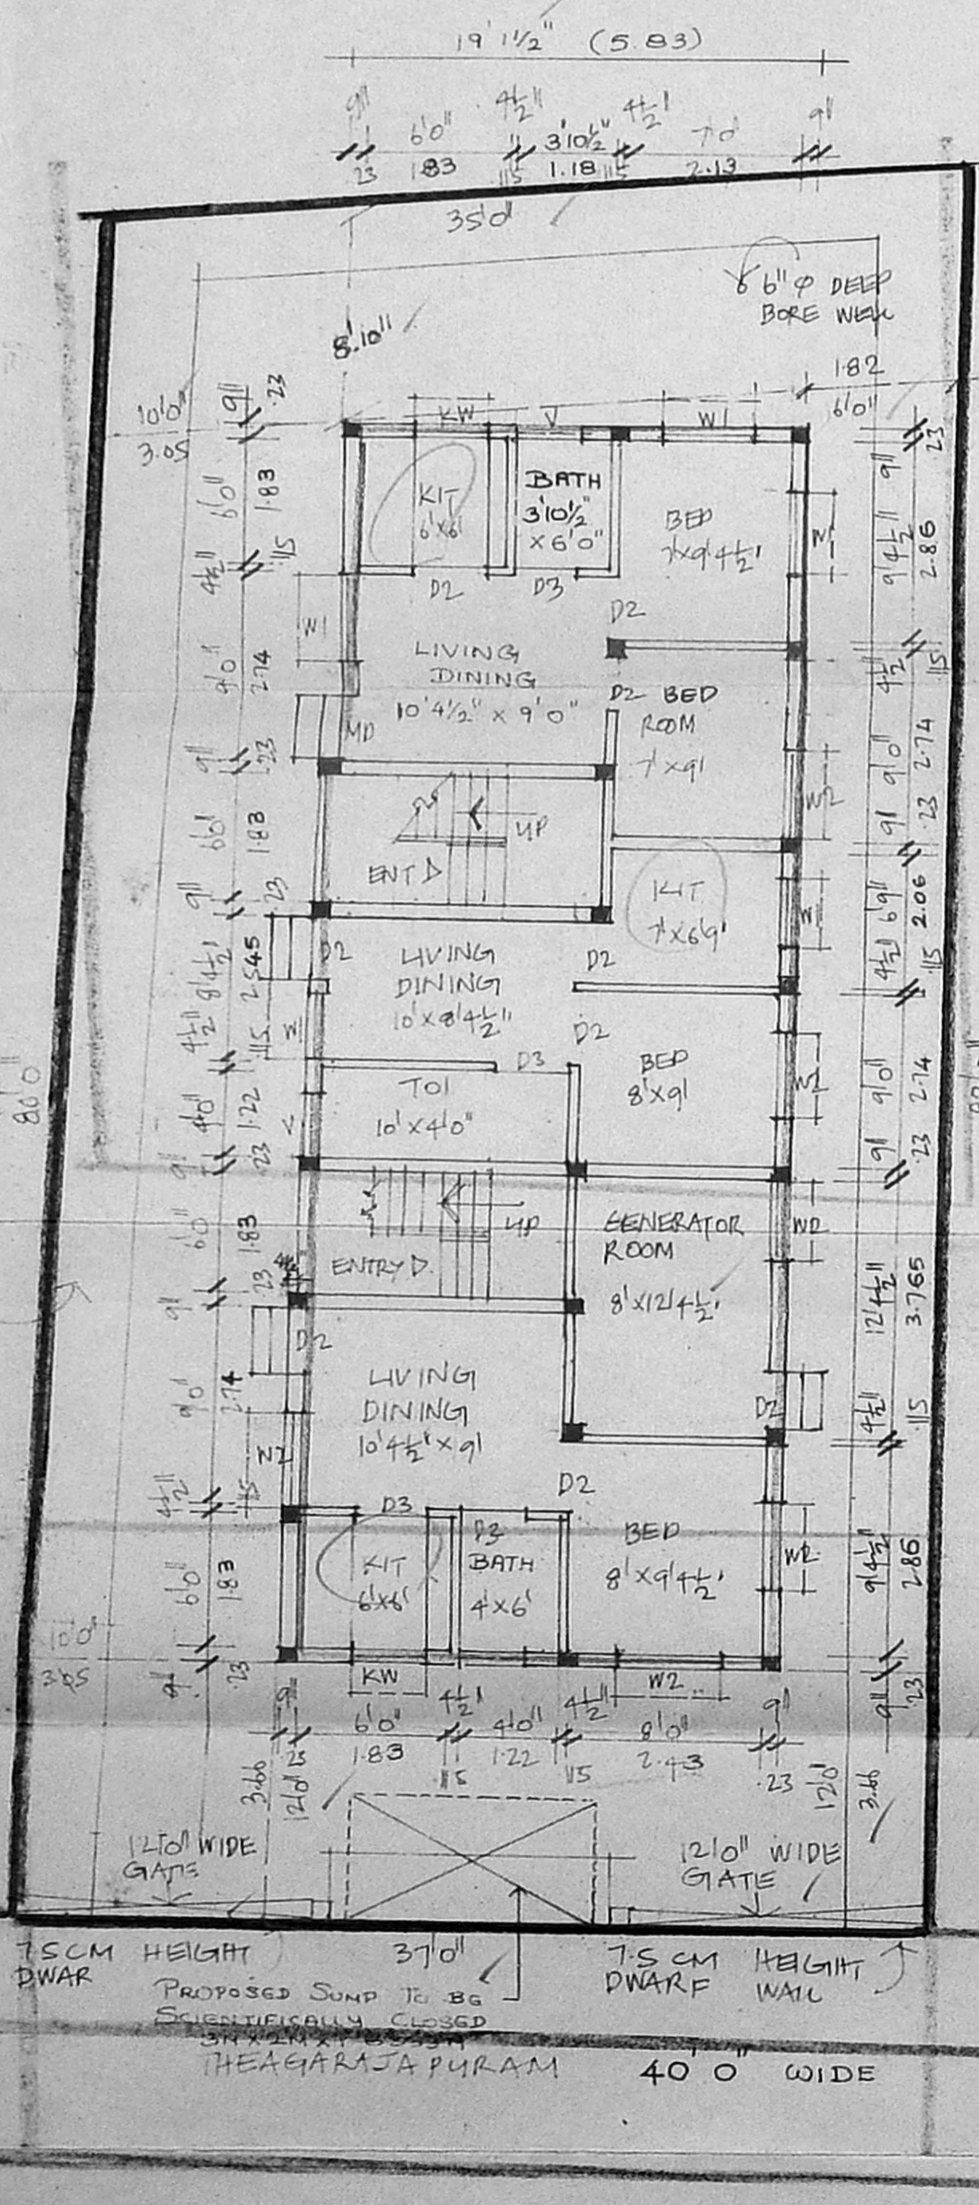 19'1½" (5.83)
9" 6'0" 4½" 3'10½" 4½" 7'0" 9"
.23 1.83 .115 1.18 .115 2.13
35'0"
6" φ DEEP
BORE WELL
8'.10"
1.82
6'0"
10'0"
3.05
9" .23
6'0" 1.83
4½" .115
9'0" 2.74
9" .23
6'0" 1.83
9" .23
8'4½" 2.545
4½" .115
4'0" 1.22
9" .23
6'0" 1.83
9" .23
9'0" 2.74
4½" .115
6'0" 1.83
9" .23
10'0"
3.05
80'0"
KW V W1
KIT
6'X6'
BATH
3'10½"
X 6'0"
BED
7'X9'4½"
W1
D2 D3
D2
W1
LIVING
DINING
10'4½" X 9'0"
MD
D2 BED
ROOM
7'X9'
W2
UP
ENT D
KIT
7'X6'9"
W1
D2
LIVING
DINING
10'X8'4½"
D2
D2
W
D3
BED
8'X9'
W2
TOI
10'X4'0"
V
UP
ENTRY D.
GENERATOR
ROOM
8'X12'4½"
W2
D2
LIVING
DINING
10'4½"X9'
D2
W2
D2
D3
D3
KIT
6'X6'
BATH
4'X6'
BED
8'X9'4½"
W2
KW W2
9" .23
9'4½" 2.86
4½" .115
9'0" 2.74
9" .23
6'9" 2.06
4½" .115
9'0" 2.74
9" .23
12'4½" 3.765
4½" .115
9'4½" 2.86
9" .23
9" 6'0" 4½" 4'0" 4½" 8'0" 9"
.23 1.83 .115 1.22 .115 2.43 .23
3.66 12'0" 12'0" 3.66
12'0" WIDE
GATE
12'0" WIDE
GATE
7.5 CM HEIGHT
DWAR
37'0"
7.5 CM HEIGHT
DWARF WALL
PROPOSED SUMP TO BE
SCIENTIFICALLY CLOSED
THEAGARAJAPURAM 40'0" WIDE